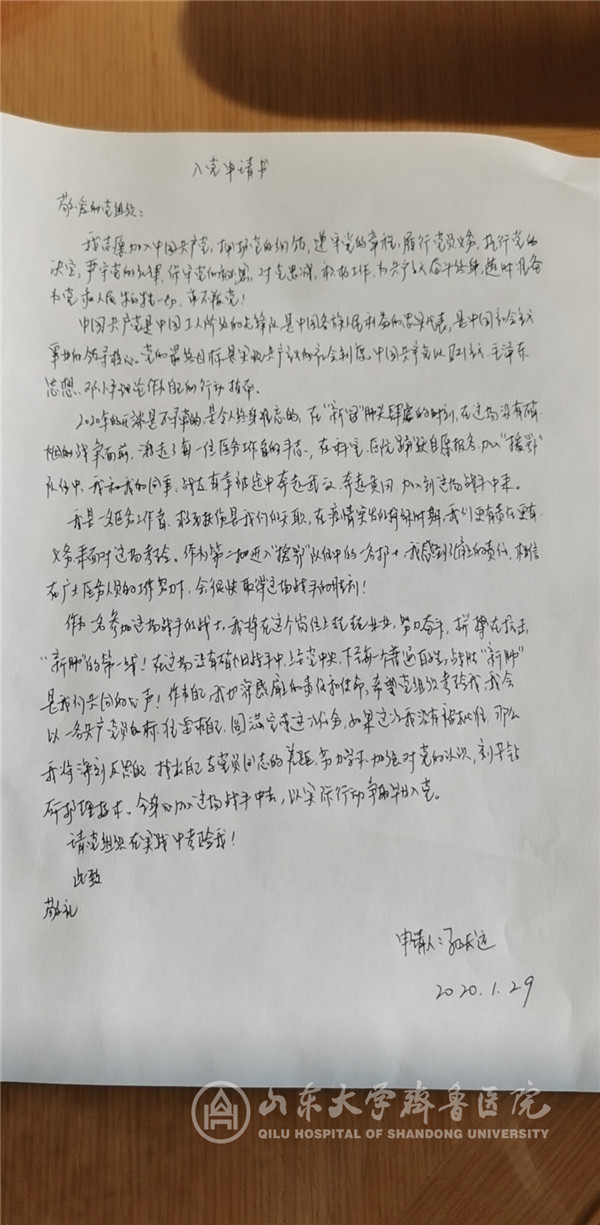 入党申请书
敬爱的党组织：
我志愿加入中国共产党，拥护党的纲领，遵守党的章程，履行党员义务，执行党的
决定，严守党的纪律，保守党的秘密，对党忠诚，积极工作，为共产主义奋斗终身，随时准备
为党和人民牺牲一切，永不叛党！
中国共产党是中国工人阶级的先锋队是中国各族人民利益的忠实代表，是中国社会主义
事业的领导核心。党的最终目标是实现共产主义的社会制度。中国共产党以马列主义、毛泽东
思想、邓小平理论作为自己的行动指南。
2020年的开端是不平凡的，是令人终身难忘的，在“新冠”肺炎肆虐的时刻，在这场没有硝
烟的战争面前，激起了每一位医务工作者的斗志，在科室、医院踊跃自愿报名加入“援鄂”
队伍中，我和我的同事、战友有幸被选中奔赴武汉、奔赴黄冈加入到这场战斗中来。
我是一名医务工作者，救死扶伤是我们的天职，在疫情突发的特殊时期，我们更有责任更有
义务来面对这场考验。作为第二批进入“援鄂”队伍中的一名护士，我感到了肩上的责任，相信
在广大医务人员的工作努力下，会很快取得这场战斗的胜利！
作为一名参加这场战斗的战士，我将在这个岗位上兢兢业业，努力奋斗，拼搏在抗击
“新肺”的第一线！在这场没有硝烟战斗中，上至党中央，下至每一个普通百姓，战胜“新肺”
是我们共同的心声！作为自己，我也深感肩负责任和使命，希望党组织考验我，我会
以一名共产党员的标准要求自己，圆满完成这次任务，如果这次我没有被批准，那么
我将深刻反思自己，找出自己与党员同志的差距，努力学习，加强对党的认识，刻苦钻
研护理技术。全身心加入这场战斗中去，以实际行动争取早日入党。
请党组织在实践中考验我！
此致
敬礼
申请人：
2020.1.29
山东大学齐鲁医院
QILU HOSPITAL OF SHANDONG UNIVERSITY